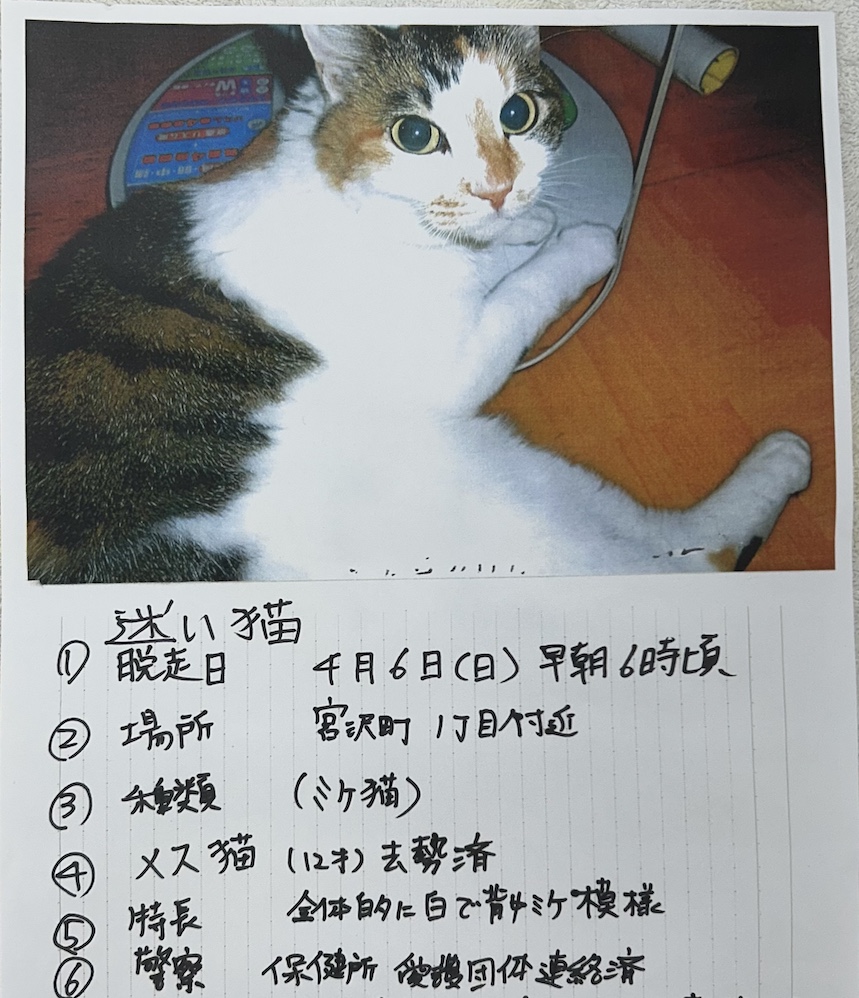 迷い猫
① 脱走日 4月6日(日) 早朝6時頃
② 場所 宮沢町 1丁目付近
③ 種類 (ミケ猫)
④ メス猫 (12才) 去勢済
⑤ 特長 全体的に白で背中ミケ模様
⑥ 警察 保健所 愛護団体連絡済